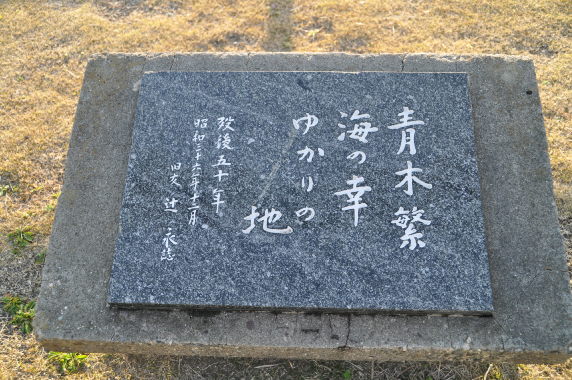 青木繁
海の幸
ゆかりの
地
歿後五十年
昭和三十六年十一月
旧友 辻 永誌